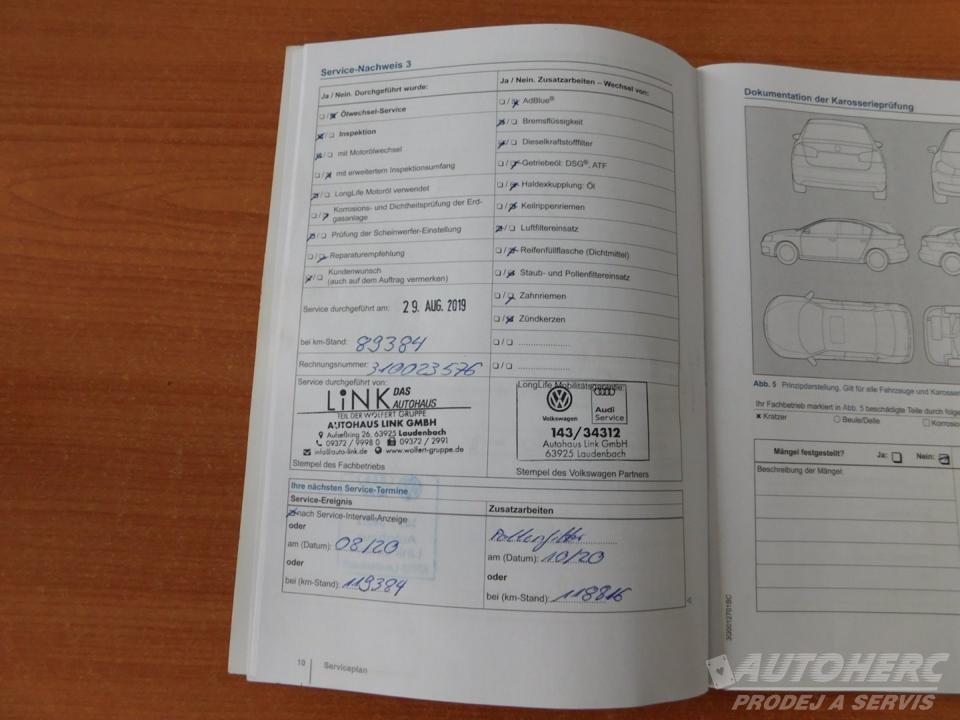 Service-Nachweis 3
Ja / Nein. Durchgeführt wurde:
Ölwechsel-Service
Inspektion
mit Motorölwechsel
mit erweitertem Inspektionsumfang
LongLife Motoröl verwendet
Korrosions- und Dichtheitsprüfung der Erd-
gasanlage
Prüfung der Scheinwerfer-Einstellung
Reparaturempfehlung
Kundenwunsch
(auch auf dem Auftrag vermerken)
Service durchgeführt am: 29. AUG. 2019
bei km-Stand: 89384
Rechnungsnummer: 310023576
Ja / Nein. Zusatzarbeiten – Wechsel von:
AdBlue®
Bremsflüssigkeit
Dieselkraftstofffilter
Getriebeöl: DSG®, ATF
Haldexkupplung: Öl
Keilrippenriemen
Luftfiltereinsatz
Reifenfüllflasche (Dichtmittel)
Staub- und Pollenfiltereinsatz
Zahnriemen
Zündkerzen
Service durchgeführt von:
LINK DAS
AUTOHAUS
TEIL DER WOLFERT GRUPPE
AUTOHAUS LINK GMBH
Auheßring 26, 63925 Laudenbach
09372 / 9998 0 09372 / 2991
info@auto-link.de www.wolfert-gruppe.de
Stempel des Fachbetriebs
LongLife Mobilitätsgarantie:
Volkswagen
Audi
Service
143/34312
Autohaus Link GmbH
63925 Laudenbach
Stempel des Volkswagen Partners
Ihre nächsten Service-Termine
Service-Ereignis
nach Service-Intervall-Anzeige
oder
am (Datum): 08/20
oder
bei (km-Stand): 119384
Zusatzarbeiten
Pollenfilter
am (Datum): 10/20
oder
bei (km-Stand): 118816
10 Serviceplan
Dokumentation der Karosserieprüfung
Abb. 5 Prinzipdarstellung. Gilt für alle Fahrzeuge und Karosse
Ihr Fachbetrieb markiert in Abb. 5 beschädigte Teile durch folge
× Kratzer ○ Beule/Delle □ Korrosio
Mängel festgestellt? Ja: Nein:
Beschreibung der Mängel:
3G0012701BC
AUTOHERC
PRODEJ A SERVIS